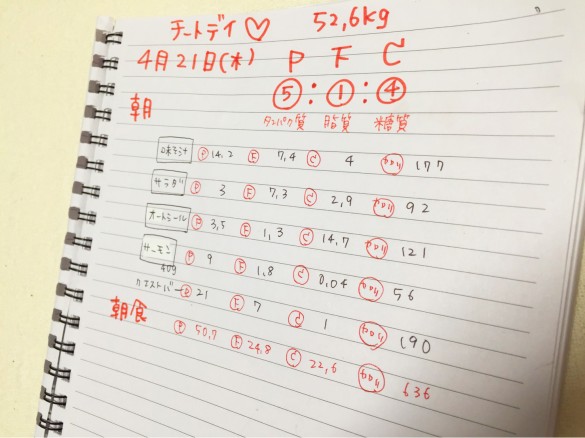 チートデイ♡ 52,6kg
4月21日(木) P F C
朝 ⑤:①:④
タンパク質 脂質 糖質
Ⓟ 14.2 Ⓕ 7,4 Ⓒ 4 カロリ 177
サラダ Ⓟ 3 Ⓕ 7,3 Ⓒ 2,9 カロリ 92
オートミール Ⓟ 3,5 Ⓕ 1,3 Ⓒ 14,7 カロリ 121
サーモン Ⓟ 9 Ⓕ 1.8 Ⓒ 0,04 カロリ 56
40g
クエストバー Ⓟ 21 Ⓕ 7 Ⓒ 1 カロリ 190
朝食 Ⓟ 50,7 Ⓕ 24,8 Ⓒ 22,6 カロリ 636